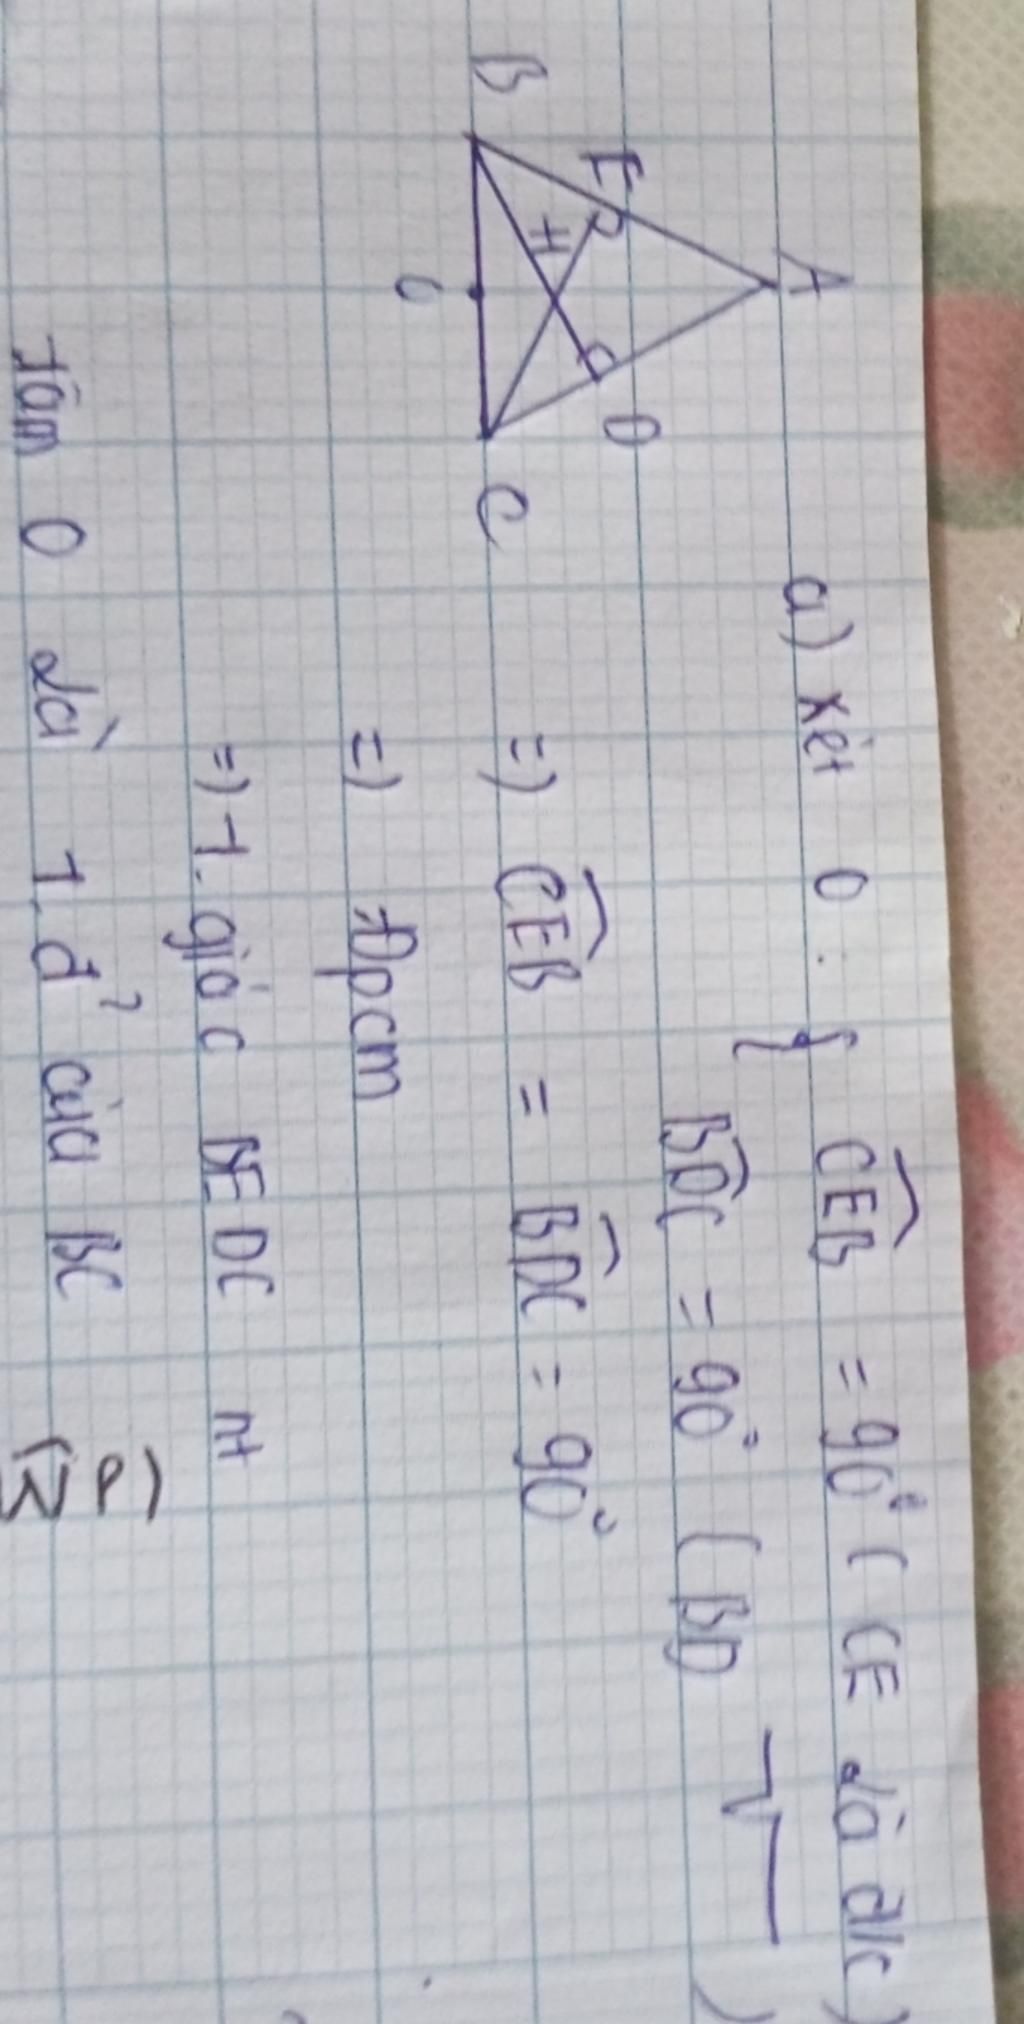 A
E
H
D
B
O
C
a) xét O : { CEB = 90° ( CE là đ/c )
BDC = 90° ( BD ⎯ )
=) CEB = BDC = 90°
=) đpcm
=) T. giác BEDC nt
Tâm O là T.đ' của BC